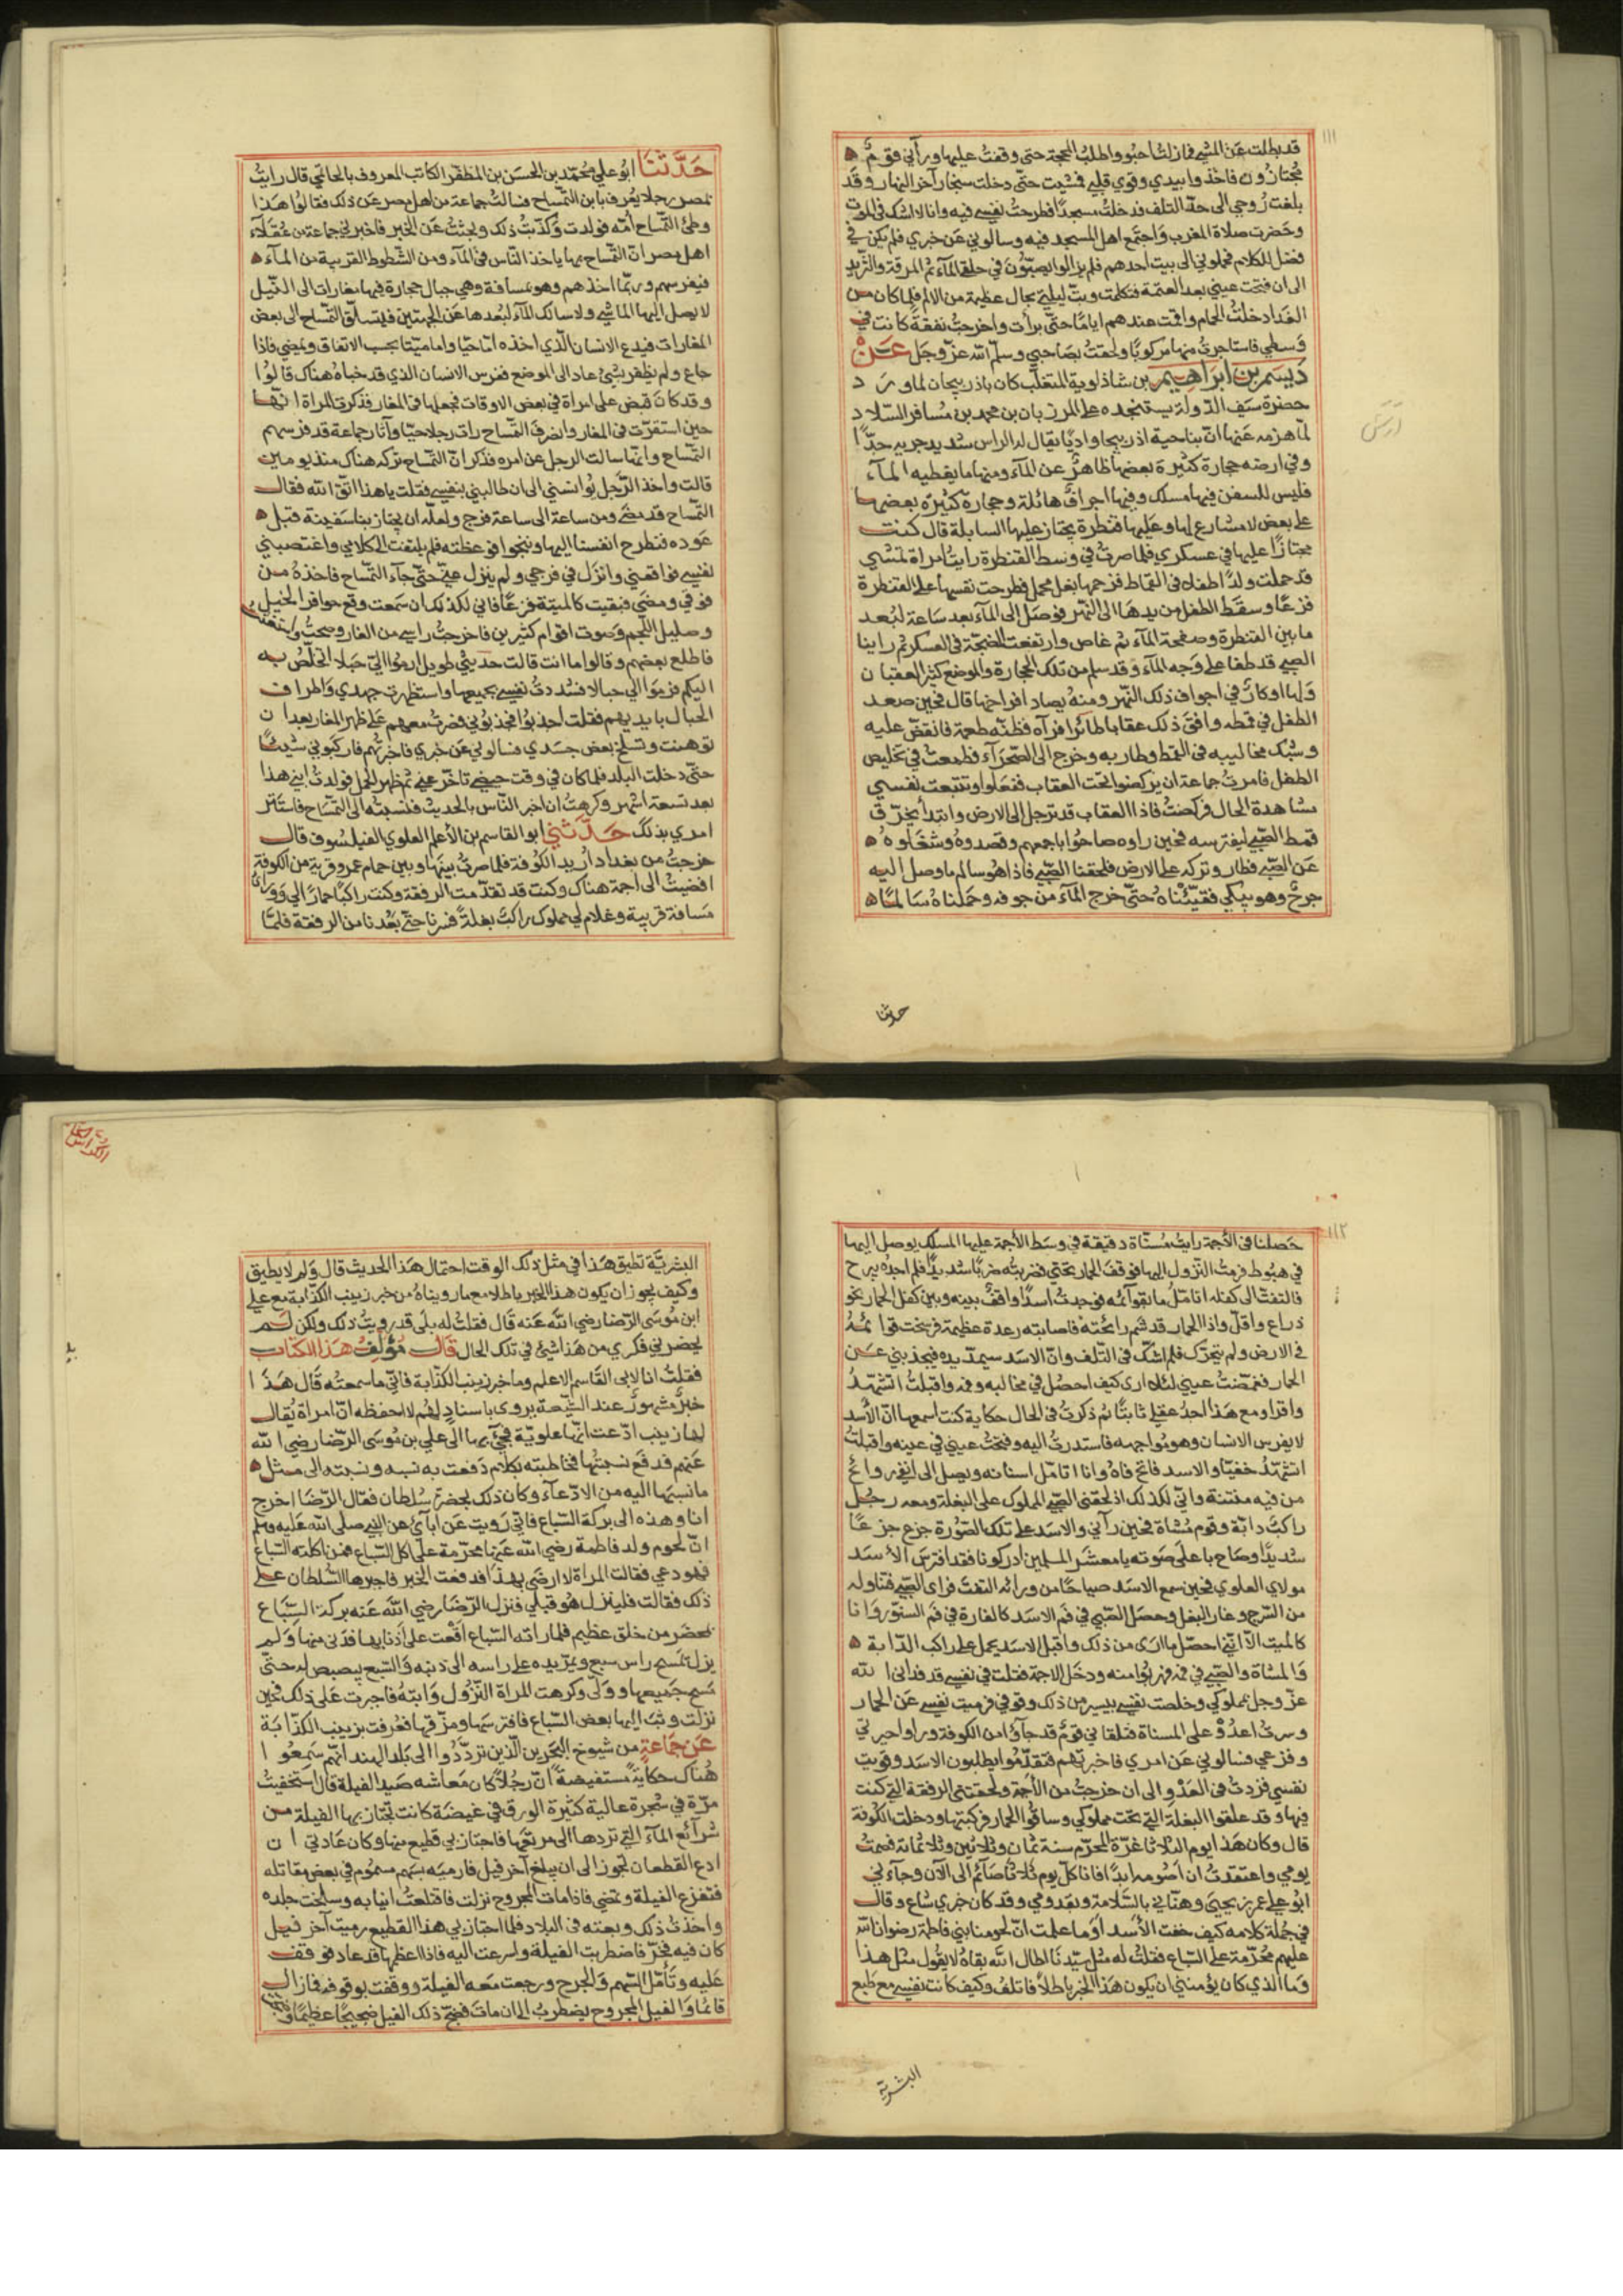 ١١١
قد بطلت عن المشي فما زلت احبو واطلب المحجة حتى وقفت عليها ورآني قوم
مجتازون فاخذوا بيدي وقوي قلبي فمشيت حتى دخلت سنجار آخر النهار وقد
بلغت روحي الى حد التلف فدخلت مسجدًا فطرحت نفسي فيه وانا لا اشك في الموت
وحضرت صلاة المغرب واجتمع اهل المسجد فيه وسالوني عن خبري فلم يكن في
فضل للكلام فحملوني الى بيت احدهم فلم يزالوا يصبّون في حلقي الماء ثم المرقة والثريد
الى ان فتحت عيني بعد العتمة فتكلمت وبتّ ليلتي بحال عظيمة من الالم فلما كان من
الغد ادخلت الحمام واقمت عندهم ايامًا حتى برأت واخرجت نفقة كانت في
وسطي فاستاجرت منها مركوبًا ولحقت بصاحبي وسلّم الله عز وجل عن
ديسم بن ابراهيم بن شاذلوية المتغلب كان باذربيجان لما ورد
حضرة سيف الدولة يستنجده على المرزبان بن محمد بن مسافر السلار
لما هزمه عنها انّ بناحية اذربيجان واديًا يقال له الراس شديد جريه جدًّا
وفي ارضه حجارة كثيرة بعضها ظاهر عن الماء ومنها ما يغطيه الماء
فليس للسفن فيها مسلك وفيها اجراف هائلة وحجارة كثيرة بعضها
على بعض لا مشارع لها وعليها قنطرة يجتاز عليها السابلة قال كنت
مجتازًا عليها في عسكري فلما صرت في وسط القنطرة رايت امراة تمشي
قد حملت ولدًا طفلا في القماط فزحمها بغل محمل فطرحت نفسها على القنطرة
فزعًا وسقط الطفل من يدها الى النهر فوصل الى الماء بعد ساعة لبعد
ما بين القنطرة وصفحة الماء ثم غاص وارتفعت الضجة في العسكر ثم راينا
الصبي قد طفا على وجه الماء وقد سلم من تلك الحجارة والموضع كثير العقبان
ولها اوكار في اجواف ذلك النهر ومنه يصاد افراخها قال فحين صعد
الطفل في قمطه وافق ذلك عقابا طائرا فرآه فظنّه طعمة فانقضّ عليه
وشبك مخاليبه في القمط وطار به وخرج الى الصحراء فطمعت في تخليص
الطفل فامرت جماعة ان يركضوا تحت العقاب ففعلوا وتتبعت نفسي
مشاهدة الحال فركضت فاذا العقاب قد ترجل الى الارض وابتدأ يخرق
قمط الصبي ليفترسه فحين راوه صاحوا باجمعهم وقصدوه وشغلوه
عن الصبي فطار وتركه على الارض فلحقنا الصبي فاذا هو سالم ما وصل اليه
جرح وهو يبكي فقيّئناه حتى خرج الماء من جوفه وحملناه سالمًا
حدثنا
حدّثنا ابو علي محمد بن الحسن بن المظفر الكاتب المعروف بالحاتمي قال رايت
بمصر رجلا يعرف بابن التمساح فسالت جماعة من اهل مصر عن ذلك فقالوا هذا
وطئ التمساح امه فولدت فكذّبت ذلك وبحثت عن الخبر فاخبرني جماعة من عقلاء
اهل مصر ان التمساح بها ياخذ الناس في الماء ومن الشطوط القريبة من الماء
فيفرسهم وربما اخذهم وهو بمسافة وهي جبال حجارة فيها مغارات الى النيل
لا يصل اليها الماشي ولا سالك الماء لبعدها عن الجهتين فيتسلّق التمساح الى بعض
المغارات فيدع الانسان الذي اخذه اما حيا واما ميتا بحسب الاتفاق ويمضي فاذا
جاع ولم يظفر بشئ عاد الى الموضع ففرس الانسان الذي قد خباه هناك قالوا
وقد كان قبض على امراة في بعض الاوقات فجعلها في المغار فذكرت المراة انها
حين استقرّت في المغار وانصرف التمساح رات رجلا حيّا وآثار جماعة قد فرسهم
التمساح وانها سالت الرجل عن امره فذكر انّ التمساح تركه هناك منذ يومين
قالت واخذ الرجل يؤانسني الى ان طالبني بنفسي فقلت يا هذا اتق الله فقال
التمساح قد مضى ومن ساعة الى ساعة فرج ولعله ان يجتاز بنا سفينة قبل
عوده فنطرح انفسنا اليها وننجوا فوعظته فلم يلتفت الى كلامي واغتصبني
نفسي فواقعني وانزل في فرجي ولم ينزل عني حتى جاء التمساح فاخذه من
فوقي ومضى فبقيت كالميتة فزعًا فاني لكذلك ان سمعت وقع حوافر الخيل
وصليل اللجم وصوت اقوام كثيرين فاخرجت راسي من الغار وصحت واستغثت
فاطلع بعضهم وقالوا ما انت قالت حديثي طويل ارموا اليّ حبلا اتخلّص به
اليكم فرموا الي حبالا فشددت نفسي بجميعها واستظهرت جهدي واطراف
الحبال بايديهم فقلت اجذبوا فجذبوني فصرت معهم على ظهر المغار بعد ان
توهنت وتسلّخ بعض جسدي فسالوني عن خبري فاخبرتهم فاركبوني شيئًا
حتى دخلت البلد فلما كان في وقت حيضي تاخّر عني ثم ظهر الحمل فولدت ابني هذا
بعد تسعة اشهر وكرهت ان اخبر الناس بالحديث فنسبته الى التمساح فاستتر
امري بذلك حدّثني ابو القاسم بن الاعلم العلوي الفيلسوف قال
خرجت من بغداد اريد الكوفة فلما صرت بينها وبين حمام عمر وقرية من الكوفة
افضيت الى اجمة هناك وكنت قد تقدّمت الرفقة وكنت راكبًا حمارًا لي وورائي
مسافة قريبة وغلام لي مملوك راكبٌ بغلةً فسرنا حتى بعدنا من الرفقة فلمّا
١١٢
حصلنا في الأجمة رايت مسنّاة دقيقة في وسط الأجمة عليها المسلك يوصل اليها
في هبوط فرمت النزول اليها فوقف الحمار تحتي فضربته ضربًا شديدًا فلم اجده يبرح
فالتفت الى كفله اتامل ما بقوائمه فوجدت اسدًا واقفٌ بينه وبين كفل الحمار نحو
ذراع واقل واذا الحمار قد شم رائحته فاصابته رعدة عظيمة فرسخت قوائمه
في الارض ولم يتحرّك فلم اشكّ في التلف وانّ الاسد سيمدّ يده فيجذبني عن
الحمار فغمّضت عيني لئلا ارى كيف احصل في مخالبه وفمه واقبلت اتشهّد
واقرا ومع هذا اجد عقلي ثابتًا ثم ذكرت في الحال حكاية كنت اسمعها انّ الأسد
لا يفرس الانسان وهو مواجهه فاستدرت اليه وفتحت عيني في عينه واقبلت
اتشهّد خفيّا والاسد فاتح فاه وانا اتامّل اسنانه ويصل الى انفي روائح
من فيه منتنة واني لكذلك اذ لحقني الصبي المملوك على البغلة ومعه رجل
راكب دابّة وقوم مشاة فحين رآني والاسد على تلك الصّورة جزع جزعًا
شديدًا وصاح باعلى صوته يا معشر المسلمين ادركونا فقد افترس الأسد
مولاي العلوي فحين سمع الاسد صياحًا من ورائه التفت فراى الصبي فتناوله
من السّرج وغار البغل وحصل الصبي في فم الاسد كالفارة في فم السنّور وانا
كالميت الّا اني احصّل ما ارى من ذلك واقبل الاسد يحمل على راكب الدابة
والمشاة والصبي في فمه فهربوا منه ودخل الاجمة فقلت في نفسي قد فداني الله
عزّ وجل بمملوكي وخلصت نفسي بيسير من ذلك وقوفي فرميت نفسي عن الحمار
وسرت اعدُوْ على المسناة فتلقاني قوم قد جاؤا من الكوفة وراوا حيرتي
وفزعي فسالوني عن امري فاخبرتهم فتقدّموا يطلبون الاسد وقويت
نفسي فزدت في العدْوِ الى ان خرجت من الأجمة ولحقتني الرفقة التي كنت
فيها وقد علقوا البغلة التي تحت مملوكي وساقوا الحمار فركبتها ودخلت الكوفة
قال وكان هذا يوم الثلاثا غرّة المحرّم سنة ثمان وثلاثين وثلاثمائة فصمت
يومي واعتقدت ان اصومه ابدًا فانا كلّ يوم ثلاثا صائم الى الآن وجاءني
ابو علي عمر بن يحيى وهنّاني بالسّلامة وبقدومي وقد كان خبري شاع وقال
في جملة كلامه كيف خفت الأسد اوما علمت انّ لحومنا بني فاطمة رضوان الله
عليهم محرّمة على السّباع فقلت له مثل سيّدنا اطال الله بقاه لا يقول مثل هذا
وما الذي كان يؤمنني ان يكون هذا الخبر باطلاً فاتلف وكيف كانت نفسي مع طبع
البشرية
البشريّة تطيق هذا في مثل ذلك الوقت احتمال هذا الحديث قال ولم لا يطيق
وكيف يجوز ان يكون هذا الخبر باطلا مع ما رويناه من خبر زينب الكذّابة مع علي
ابن موسى الرّضا رضي الله عنه قال فقلت له بلى قد رويت ذلك ولكن لم
يحضرني فكري من هذا شئ في تلك الحال قال مؤلف هذا الكتاب
فقلت انا لابي القاسم الاعلم وما خبر زينب الكذّابة فانّي ما سمعته قال هذا
خبرٌ مشهور عند الشّيعة يروى باسنادٍ لهم لا احفظه انّ امراة يقال
لها زينب ادّعت انّها علوية فجئ بها الى علي بن موسى الرّضا رضي الله
عنهم فدفع نسبتها فخاطبته بكلام دفعت به نسبه ونسبته الى مثل
ما نسبها اليه من الادّعاء وكان ذلك بحضرة سلطان فقال الرّضا اخرج
انا وهذه الى بركة السّباع فانّي رويت عن آبائي عن النبي صلى الله عليه وسلم
انّ لحوم ولد فاطمة رضي الله عنها محرّمة على اكل السّباع فمن اكلته السّباع
فهو دعي فقالت المراة لا ارضى بهذا فدفعت الخبر فاجبرها السّلطان على
ذلك فقالت فلينزل هو قبلي فنزل الرّضا رضي الله عنه بركة السّباع
بمحضر من خلق عظيم فلما راته السّباع اقعت على اذنابها فدنى منها ولم
يزل يمسح راس سبع ويمرّ يده على راسه الى ذنبه والسّبع يبصبص له حتى
مسح جميعها وولّى وكرهت المراة النّزول وابته فاجبرت على ذلك فحين
نزلت وثب اليها بعض السّباع فافترسها ومزّقها فعُرفت بزينب الكذّابة
عن جماعة من شيوخ البحرين الّذين تردّدوا الى بلد الهند انّهم سمعوا
هناك حكايةً مستفيضةً انّ رجلاً كان معاشه صيد الفيلة قال استخفيت
مرّة في شجرة عالية كثيرة الورق في غيضة كانت تجتاز بها الفيلة من
شرائع الماء التي تردها الى مرتعها فاجتاز بي قطيع منها وكان عادتي ان
ادع القطعان تجوز الى ان يبلغ آخر فيل فارميه بسهم مسموم في بعض مقاتله
فتفزع الفيلة وتمضي فاذا مات المجروح نزلت فاقتلعت انيابه وسلخت جلده
واخذت ذلك وبعته في البلاد فلما اجتاز بي هذا القطيع رميت آخر فيل
كان فيه فخرّ فاضطربت الفيلة واسرعت اليه فاذا اعظمها قد عاد فوقف
عليه وتأمّل السّهم والجرح ورجعت معه الفيلة ووقفت بوقوفه فما زال
قائمًا والفيل المجروح يضطرب الى ان مات فضجّ ذلك الفيل ضجيجًا عظيمًا